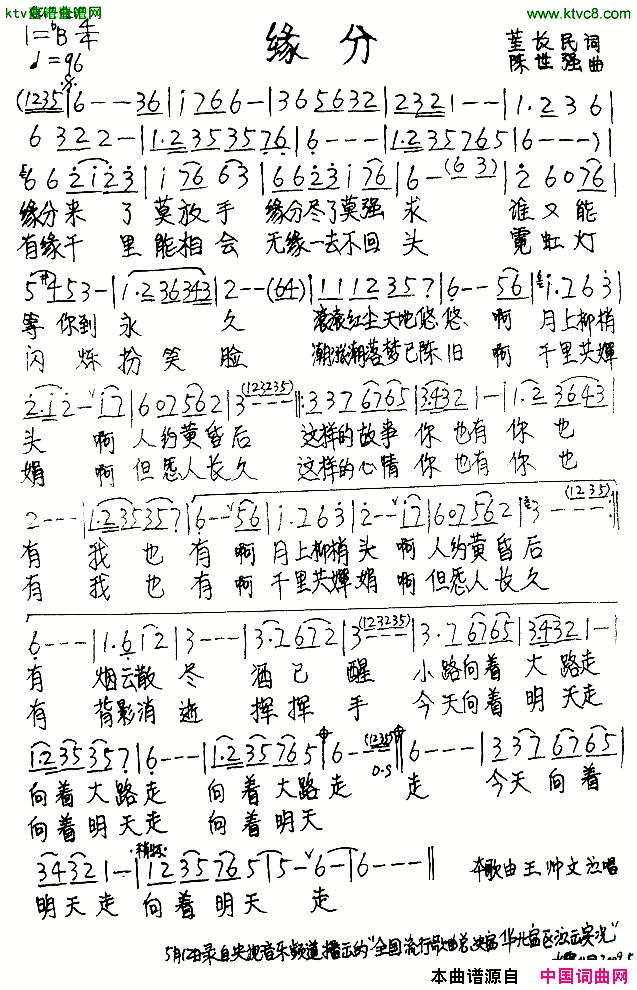 www.ktvc8.com
缘分
1=♭B 4/4
♩=96
董长民词
陈世强曲
(1235|6---36|i766-|365632|2321--|1.236|
6322-|1.2353576|6---|1.2353765|6---)|
662i23|i7663|6623i76|6-(63)|26076|
缘分来了莫放手 缘分尽了莫强求 谁又能
有缘千里能相会 无缘一去不回头 霓虹灯
5#453-|1.236343|2--(64)|1112357|6--56|i.263|
等你到永久 滚滚红尘天地悠悠 啊 月上柳梢
闪烁扮笑脸 潮涨潮落梦已陈旧 啊 千里共婵
2.i2-i7|607562|3---(123235)‖:3376765|3432 1-|1.23643|
头 啊 人约黄昏后 这样的故事你也有你也
娟 啊 但愿人长久 这样的心情你也有你也
2---|1.235357|6--56|i.263|2--i7|607562|3---(1235):‖
有 我也有啊月上柳梢头 啊人约黄昏后
有 我也有啊千里共婵娟 啊但愿人长久
6---|1.612|3---|3.7672|3---(123235)|3.76765|3432 1-|
有 烟云散尽 酒已醒 小路向着大路走
有 背影消逝 挥挥手 今天向着明天走
1.235357|6---|1.235765|6---(1235)|6---|3376765|
D.S
向着大路走 向着大路走 走 今天向着
向着明天走 向着明天
3432 1-|1235765|5-6-|6---‖
明天走 向着明天 走
本歌由王帅文演唱
5月12日录自央视音乐频道播出的"全国流行歌曲总决赛华北赛区决赛实况"
本曲谱源自 中国词曲网